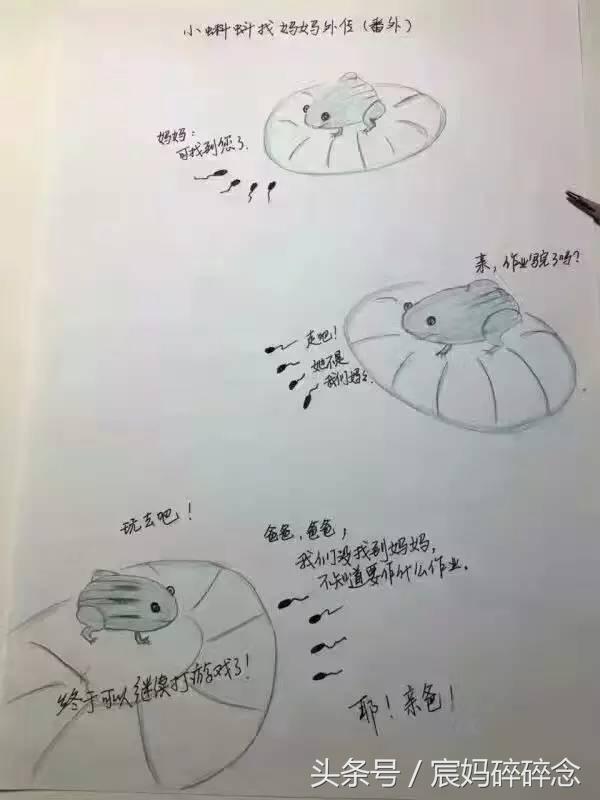 小蝌蚪找妈妈外传(番外)
妈妈:
可找到您了.
亲,作业写完了吗?
走吧!
她不是
我们妈妈.
玩去吧!
爸爸,爸爸,
我们没找到妈妈,
不知道要作什么作业.
终于可以继续打游戏了!
耶!亲爸!
头条号/宸妈碎碎念